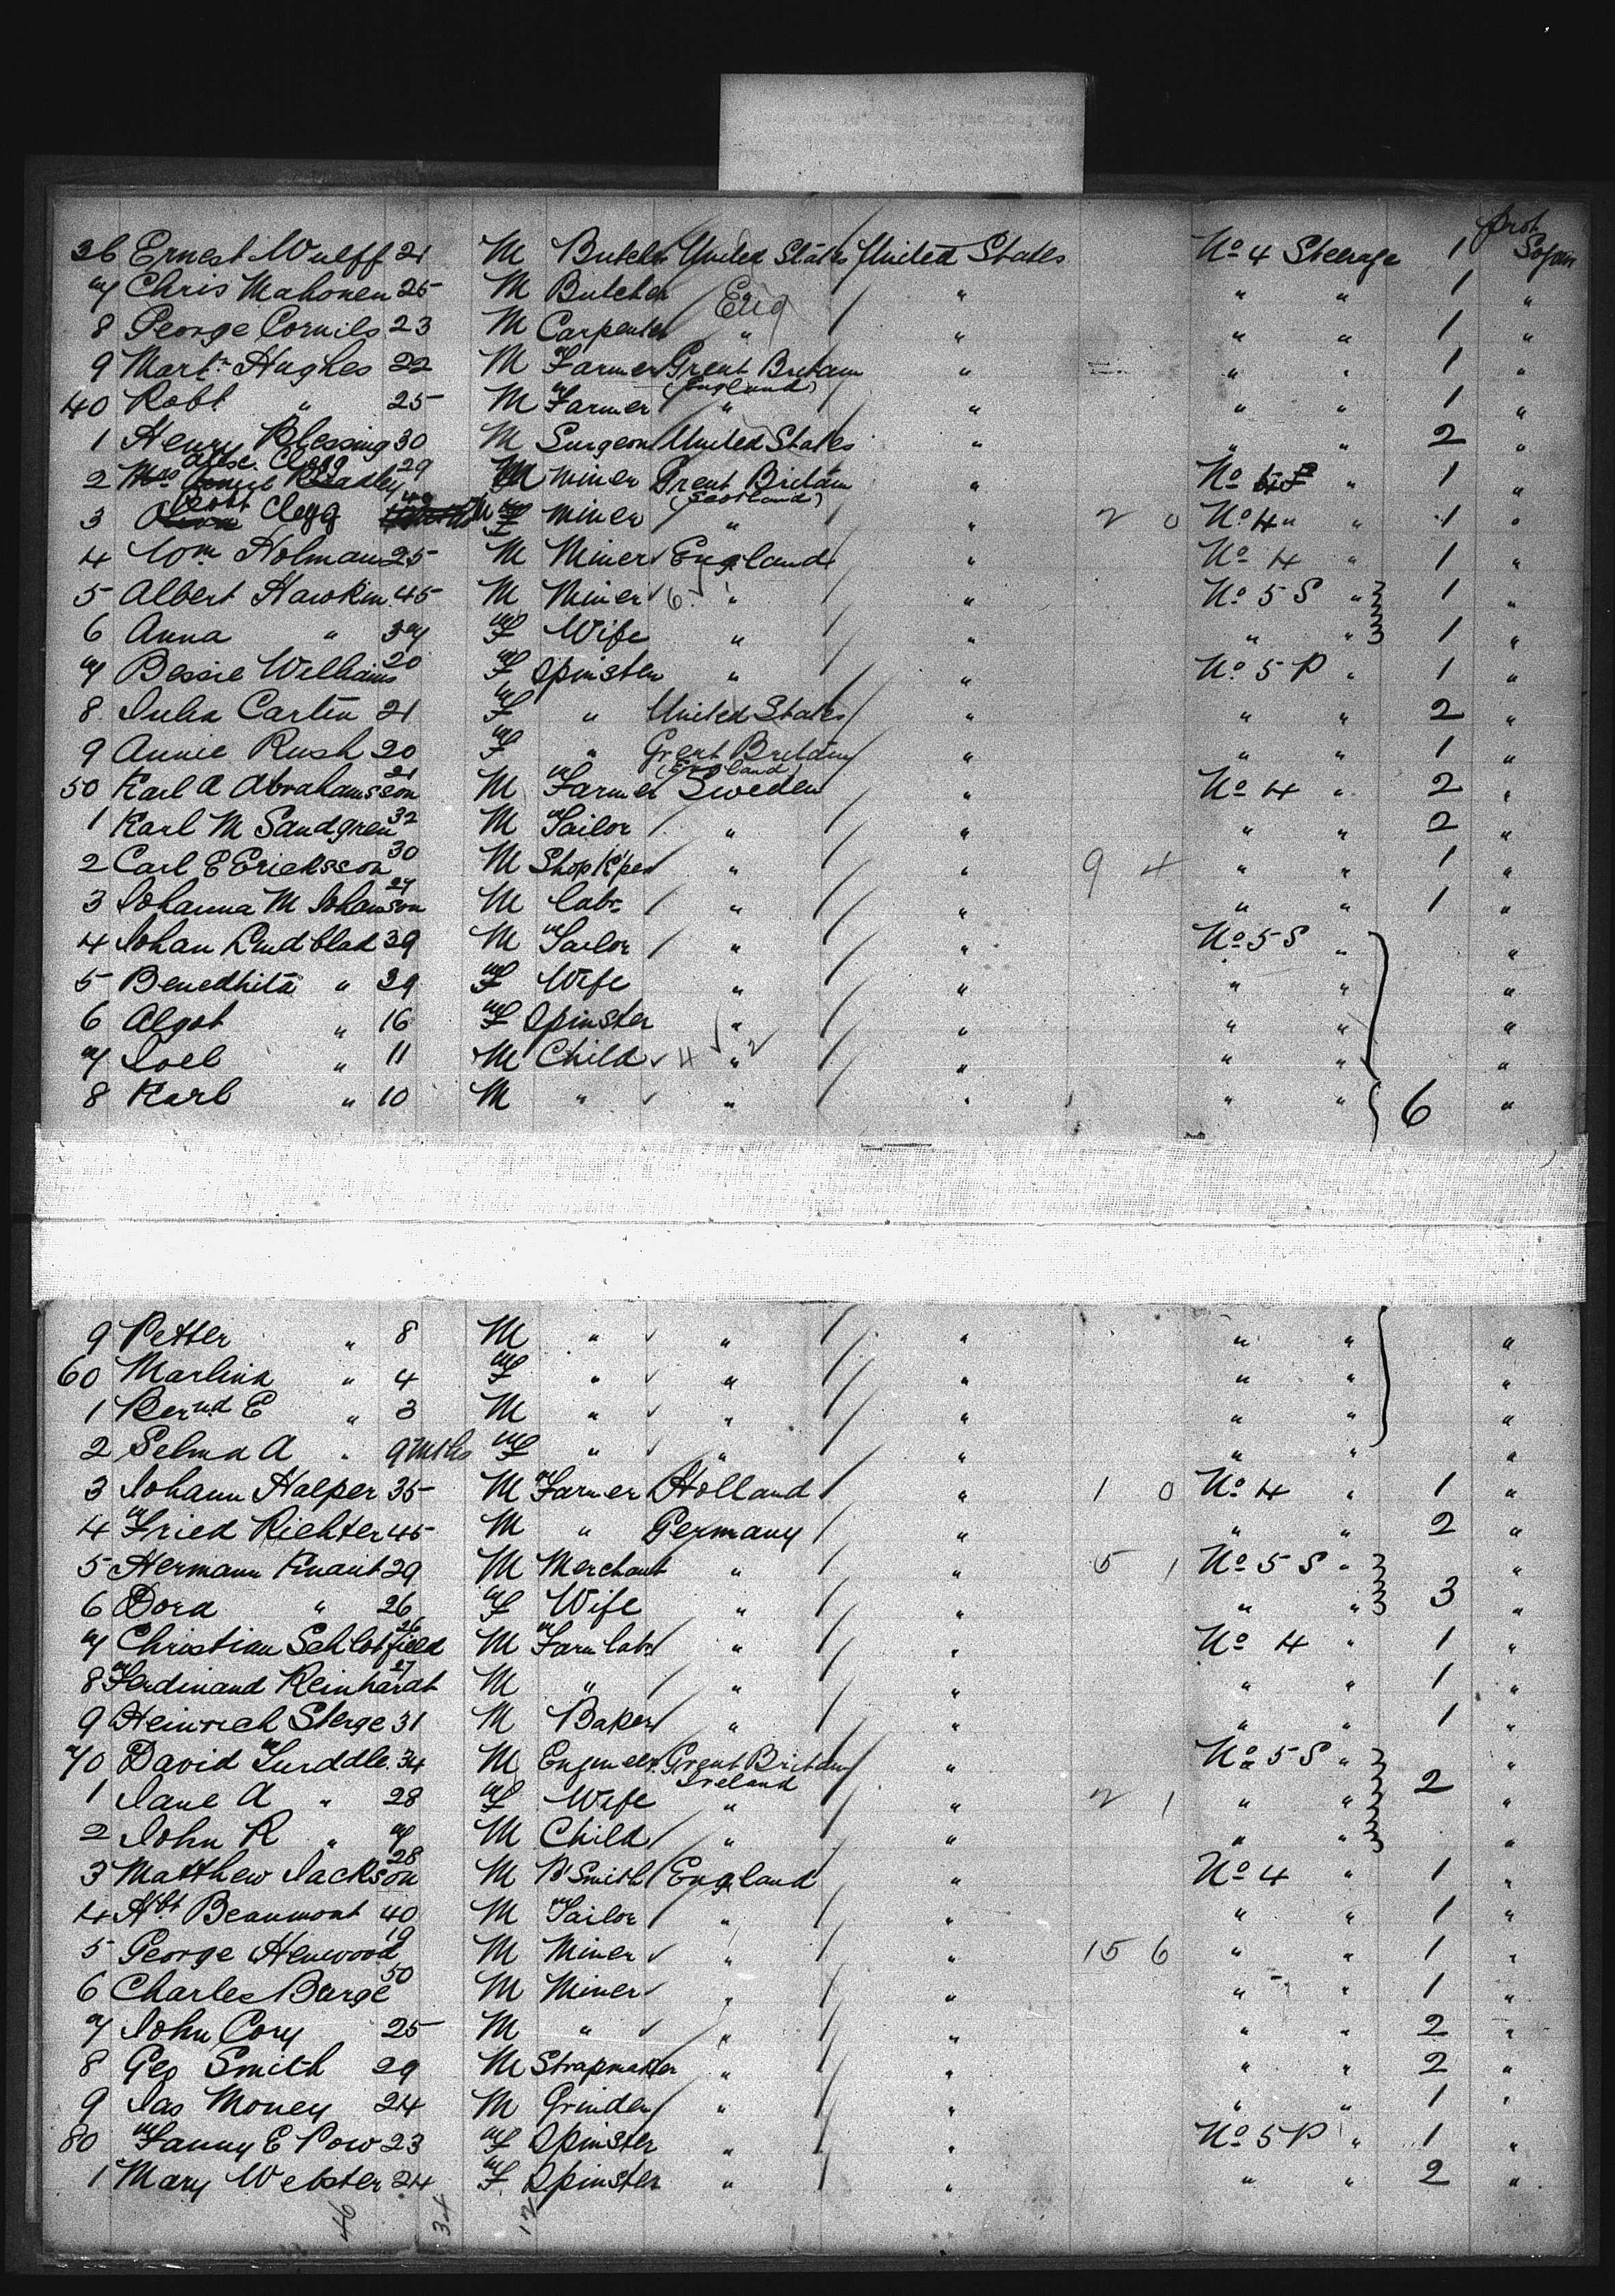 Prot
36 Ernest Wulff 21 M Butcher United States United States No 4 Steerage 1 Sojourn
7 Chris Mahonen 25 M Butcher Eng " " " 1 "
8 George Cornils 23 M Carpenter " " " " 1 "
9 Mart. Hughes 22 M Farmer Great Britain (England) " " " 1 "
40 Robt " 25 M Farmer " " " " 1 "
1 Henry Blessing 30 M Surgeon United States " " " 2 "
2 Clegg 29 M Miner Great Britain (Scotland) " No " 1 "
3 Robt Clegg M Miner " " 2 0 No 4 " " 1 "
4 Wm Holman 25 M Miner England " No 4 " 1 "
5 Albert Hawkin 45 M Miner 6 " " No 5 S " 1 "
6 Anna " 37 F Wife " " " " 1 "
7 Bessie Williams 20 F Spinster " " No 5 P " 1 "
8 Julia Carten 21 F " United States " " " 2 "
9 Annie Rush 20 F " Great Britain (England) " " " 1 "
50 Karl A Abrahamsson 21 M Farmer Sweden " No 4 " 2 "
1 Karl M Sandgren 32 M Tailor " " " " 2 "
2 Carl E Ericksson 30 M Shop K'per " " 9 4 " " 1 "
3 Johanna M Johanson 27 M Labr " " " " 1 "
4 Johan Lindblad 39 M Tailor " " No 5 S " "
5 Benedhita " 39 F Wife " " " " "
6 Algot " 16 F Spinster " " " " "
7 Joel " 11 M Child 4 " 2 " " " "
8 Karl " 10 M " " " " " 6 "
9 Petter " 8 M " " " " " "
60 Marlina " 4 F " " " " " "
1 Bernd E " 3 M " " " " " "
2 Selma A " 9 Mths F " " " " " "
3 Johann Halper 35 M Farmer Holland " 1 0 No 4 " 1 "
4 Fried Richter 45 M " Germany " " " 2 "
5 Hermann Knaut 29 M Merchant " " 5 1 No 5 S " "
6 Dora " 26 F Wife " " " " 3 "
7 Christian Schlotfield 26 M Farm labr " " No 4 " 1 "
8 Ferdinand Reinhardt 27 M " " " " " 1 "
9 Heinrich Sterge 31 M Baker " " " " 1 "
70 David Turddle 34 M Engineer Great Britain Ireland " No 5 S " "
1 Jane A " 28 F Wife " " 2 1 " " 2 "
2 John R " 7 M Child " " " " "
3 Matthew Jackson 28 M B'Smith England " No 4 " 1 "
4 Hbt Beaumont 40 M Tailor " " " " 1 "
5 George Henwood 19 M Miner " " 15 6 " " 1 "
6 Charles Barge 50 M Miner " " " " 1 "
7 John Cory 25 M " " " " " 2 "
8 Geo Smith 29 M Strapmaker " " " " 2 "
9 Jas Money 24 M Grinder " " " " 1 "
80 Fanny E Pow 23 F Spinster " " No 5 P " 1 "
1 Mary Webster 24 F Spinster " " " " 2 "
46 34 12